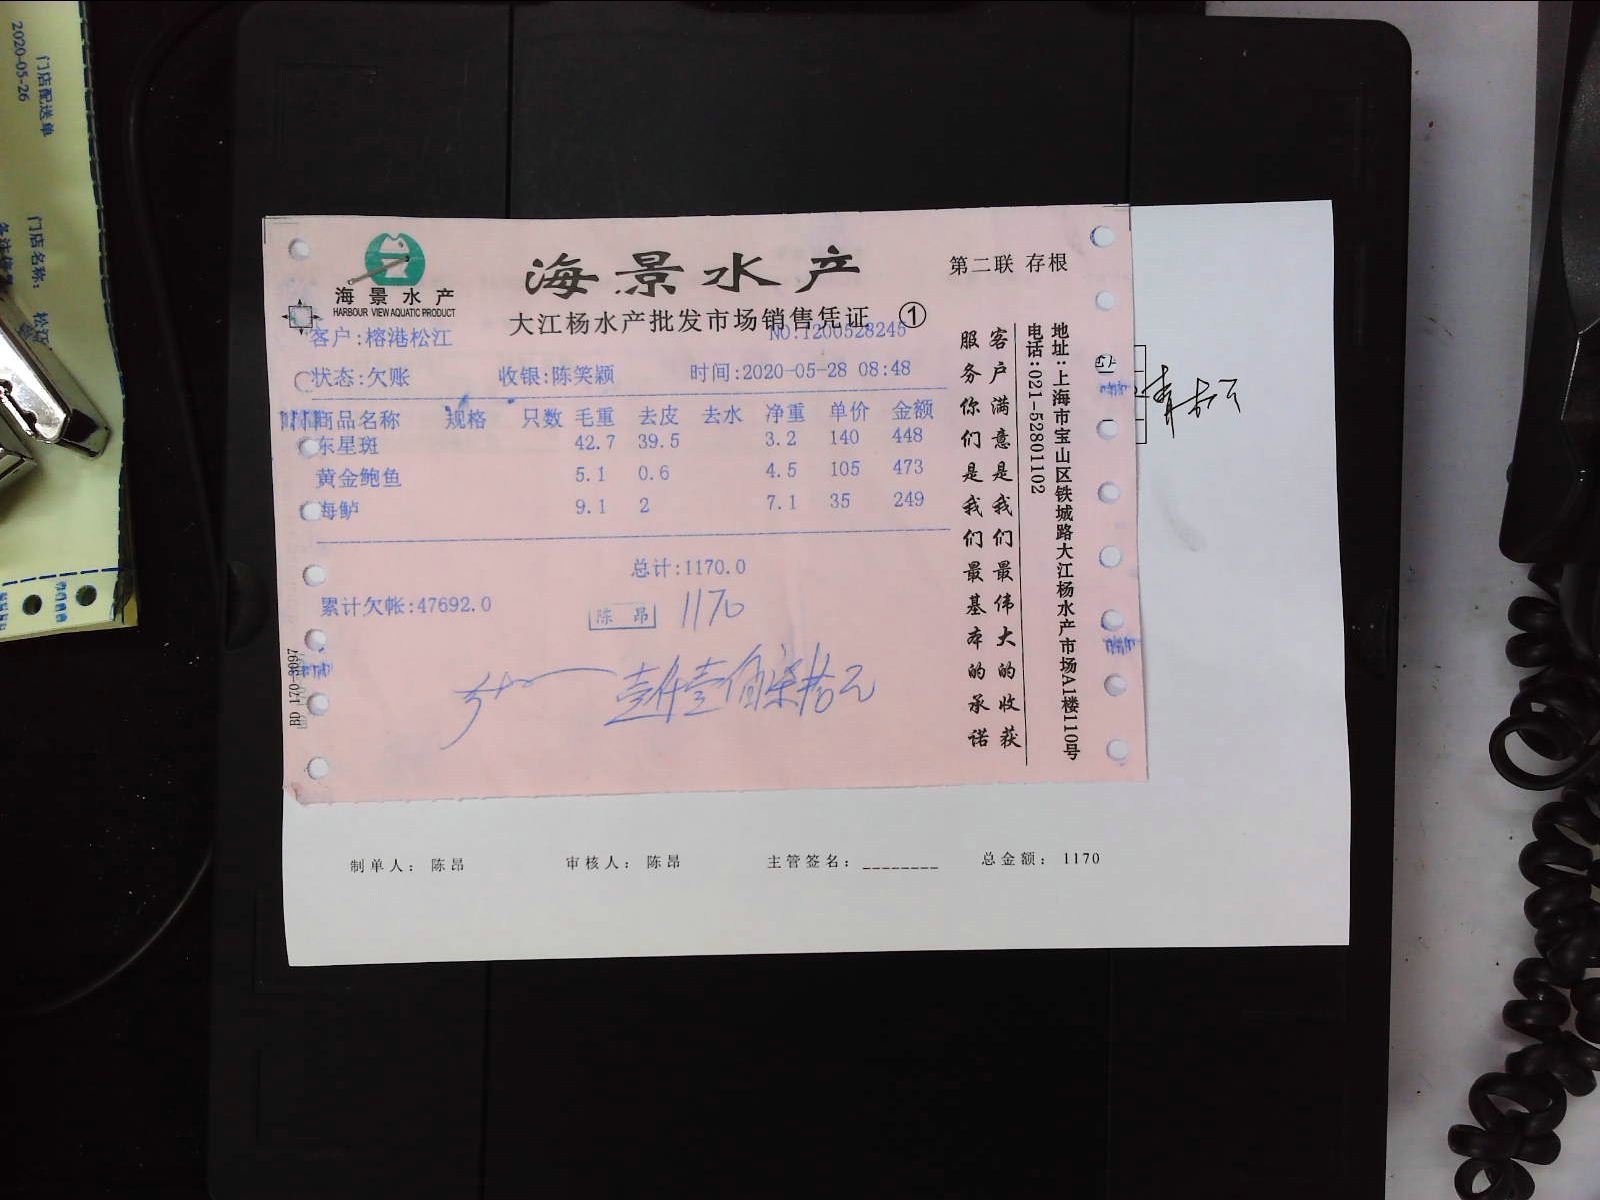 门店配送单
2020-05-26
门店名称:
海景水产
HARBOUR VIEW AQUATIC PRODUCT
海景水产
第二联 存根
大江杨水产批发市场销售凭证 ①
客户:榕港松江
NO:1200528245
状态:欠账 收银:陈笑颖 时间:2020-05-28 08:48
商品名称 规格 只数 毛重 去皮 去水 净重 单价 金额
东星斑 42.7 39.5 3.2 140 448
黄金鲍鱼 5.1 0.6 4.5 105 473
海鲈 9.1 2 7.1 35 249
总计:1170.0
累计欠帐:47692.0
陈昂
1170
壹仟壹佰柒拾元
客户满意是我们最伟大的收获
服务你们是我们最基本的承诺
地址:上海市宝山区铁城路大江杨水产市场A1楼110号
电话:021-52801102
制单人: 陈昂 审核人: 陈昂 主管签名:________ 总金额: 1170